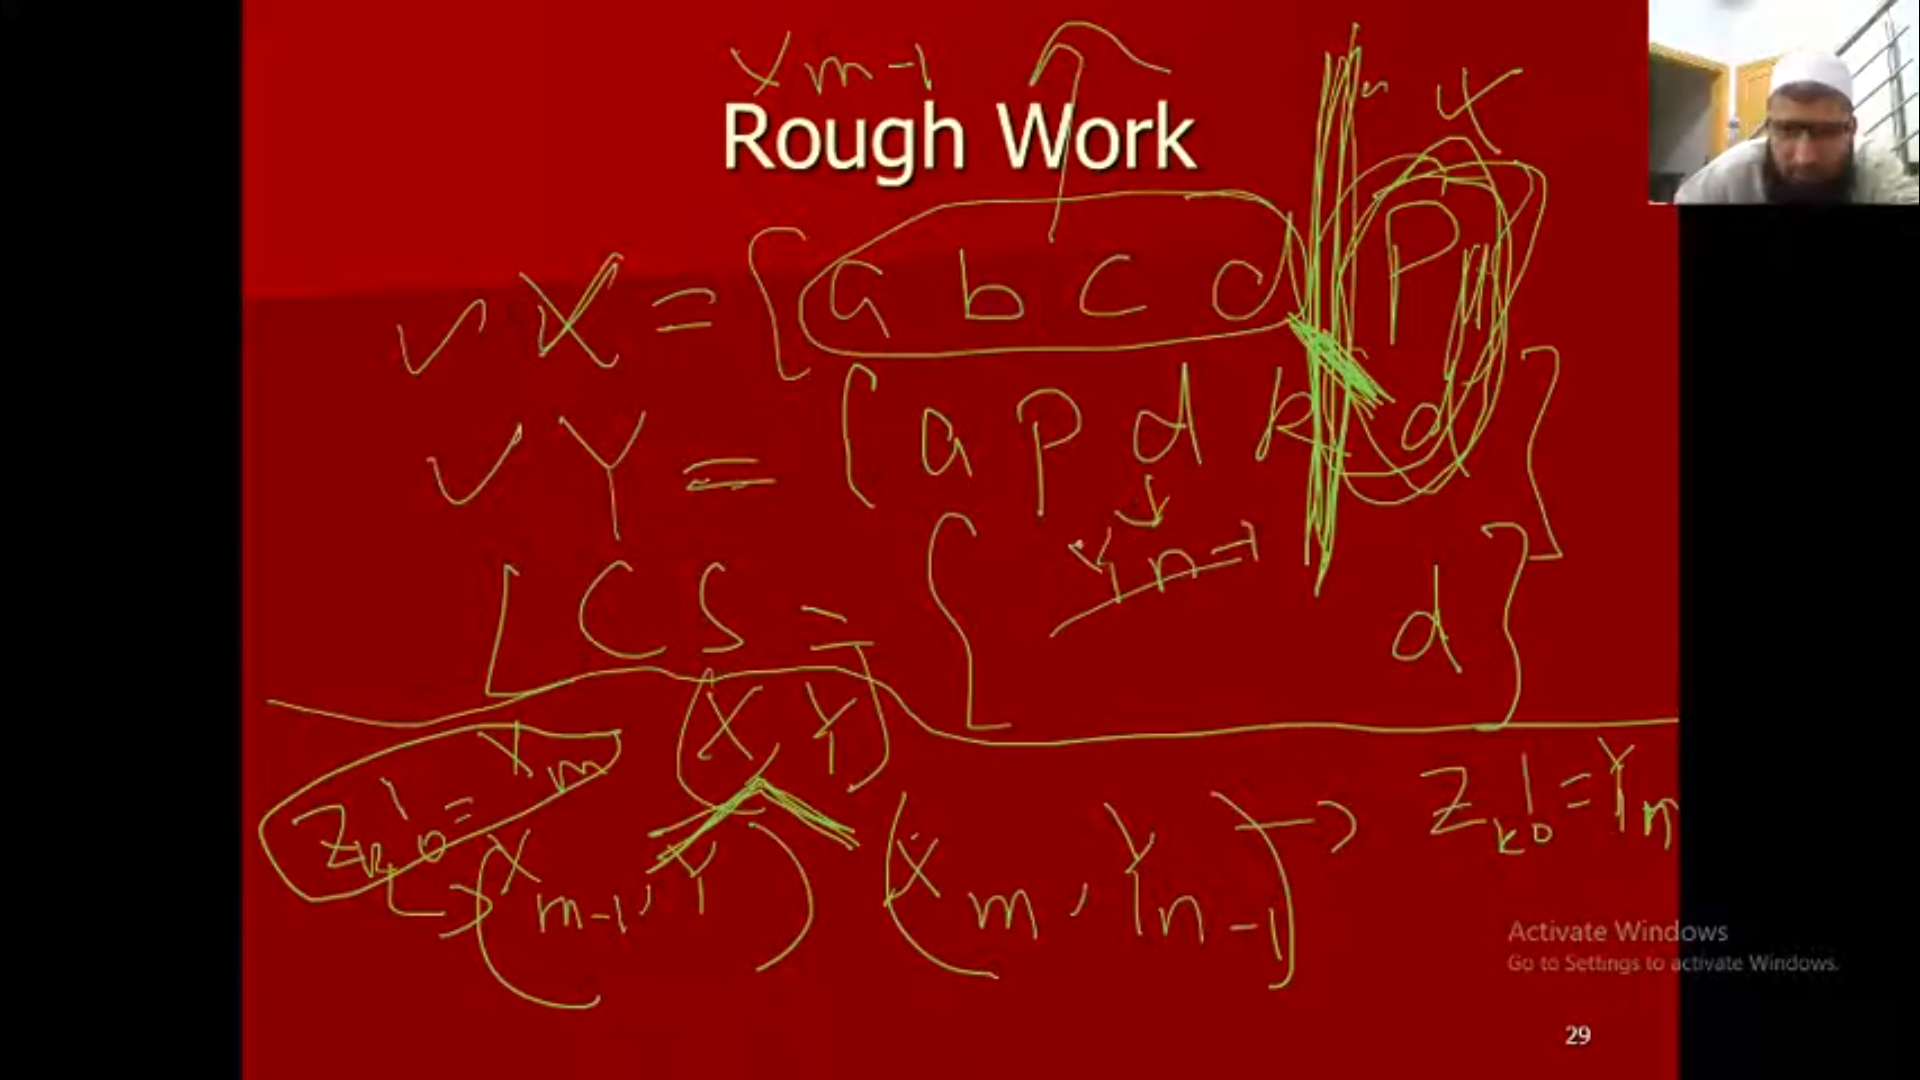 Xm-1
Rough Work
X
X = [ a b c d P
Y = [ a p d k d ]
Yn-1
LCS = [ d ]
X Y
Zk != Xm
Zk != Yn
Xm-1, Y
Xm, Yn-1
Activate Windows
Go to Settings to activate Windows.
29